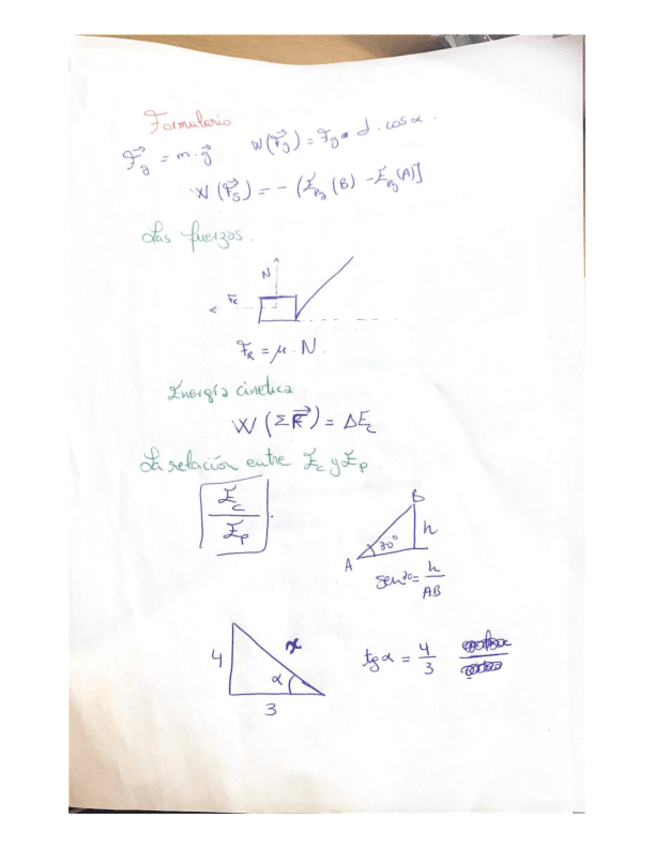 Formulario
F⃗g = m·g⃗ W(F⃗g) = Fg • d · cos α.
W(F⃗s) = - (Epg(B) - Epg(A)]
Las fuerzas.
N
FR
FR = μ·N.
Energía cinetica
W(ΣF⃗) = ΔEc
La relación entre Ec y Ep.
Ec
Ep
B
h
30°
A
sen30 = h/AB
4
x
α
3
tg α = 4/3